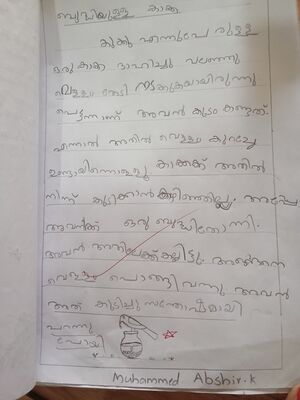 ബുദ്ധിയുള്ള കാക്ക
കുക്കു എന്നുപേരുള്ള
ഒരു കാക്ക ദാഹിച്ചു വലഞ്ഞു
വെള്ളം തേടി നടക്കുകയായിരുന്നു
പെട്ടന്നാണ് അവൻ കുടം കണ്ടത്.
എന്നാൽ അതിൽ വെള്ളം കുറച്ചേ
ഉണ്ടായിന്നൊള്ളു കാക്കക്ക് അതിൽ
നിന്ന് കുടിക്കാൻ കഴിഞ്ഞില്ല. അപ്പോ
അവൻക്ക് ഒരു ബുദ്ധി തോന്നി.
അവൻ അതിലേക്ക് കല്ലിട്ടു. അങ്ങനെ
വെള്ളം പൊങ്ങി വന്നു അവൻ
അത് കുടിച്ചു സന്തോഷമായി
പറന്നു
പോയി
Muhammed Abshir.k